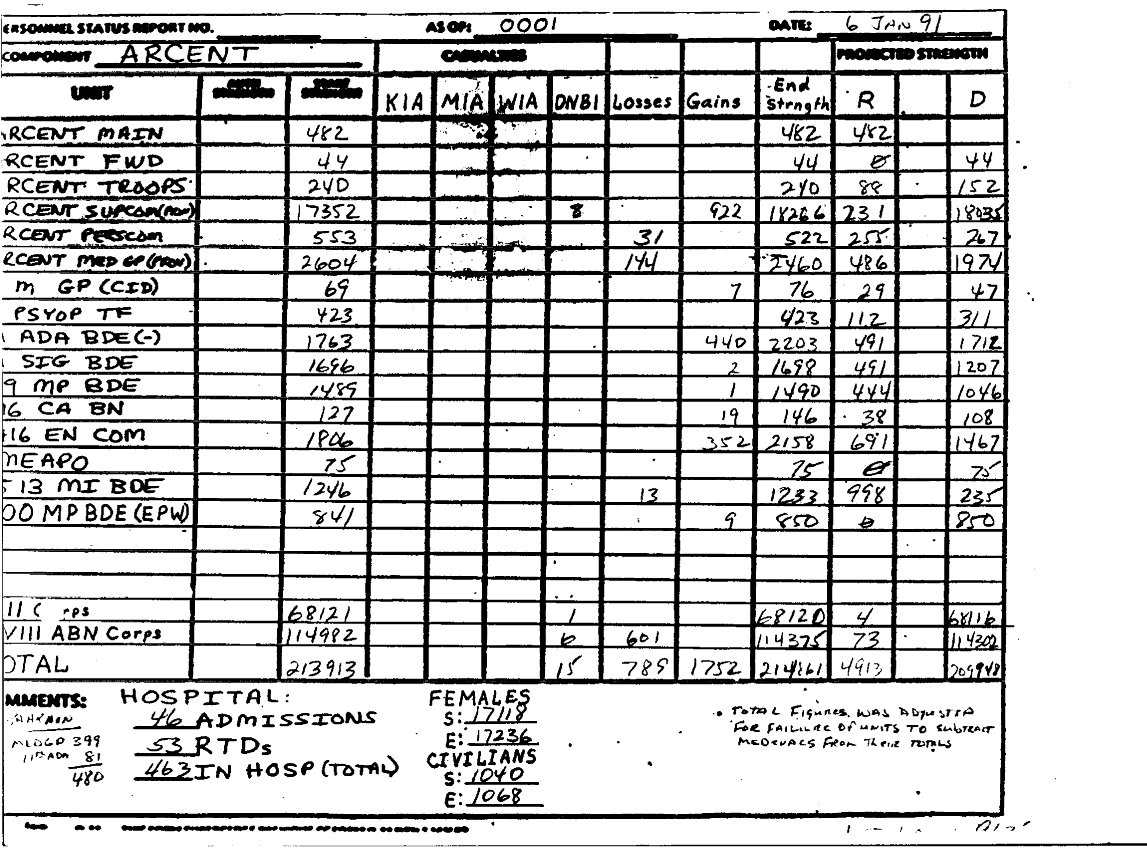 ERSONNEL STATUS REPORT NO. AS OF: 0001 DATE: 6 JAN 91
COMPONENT ARCENT CASUALTIES PROJECTED STRENGTH
UNIT KIA MIA WIA DNBI Losses Gains End Strngth R D
RCENT MAIN 482 482 482
RCENT FWD 44 44 0 44
RCENT TROOPS 240 240 88 152
RCENT SUPCOM(PROV) 17352 8 922 18266 231 18035
RCENT PERSCOM 553 31 522 255 267
RCENT MED GP (PROV) 2604 144 2460 486 1974
M GP (CID) 69 7 76 29 47
PSYOP TF 423 423 112 311
ADA BDE(-) 1763 440 2203 491 1712
SIG BDE 1696 2 1698 491 1207
9 MP BDE 1489 1 1490 444 1046
16 CA BN 127 19 146 38 108
416 EN COM 1806 352 2158 691 1467
MEAPO 75 75 0 75
513 MI BDE 1246 13 1233 998 235
00 MP BDE (EPW) 841 9 850 0 850
II Corps 68121 1 68120 4 68116
VIII ABN Corps 114982 6 601 114375 73 114302
OTAL 213913 15 789 1752 214861 4913 209948
MMENTS: HOSPITAL: FEMALES
46 ADMISSIONS S: 17118
53 RTDs E: 17236
463 IN HOSP (TOTAL) CIVILIANS
S: 1040
E: 1068
MEDGP 399
11th ADA 81
480
• TOTAL FIGURES WAS ADJUSTED
FOR FAILURE OF UNITS TO SUBTRACT
MEDEVACS FROM THEIR TOTALS